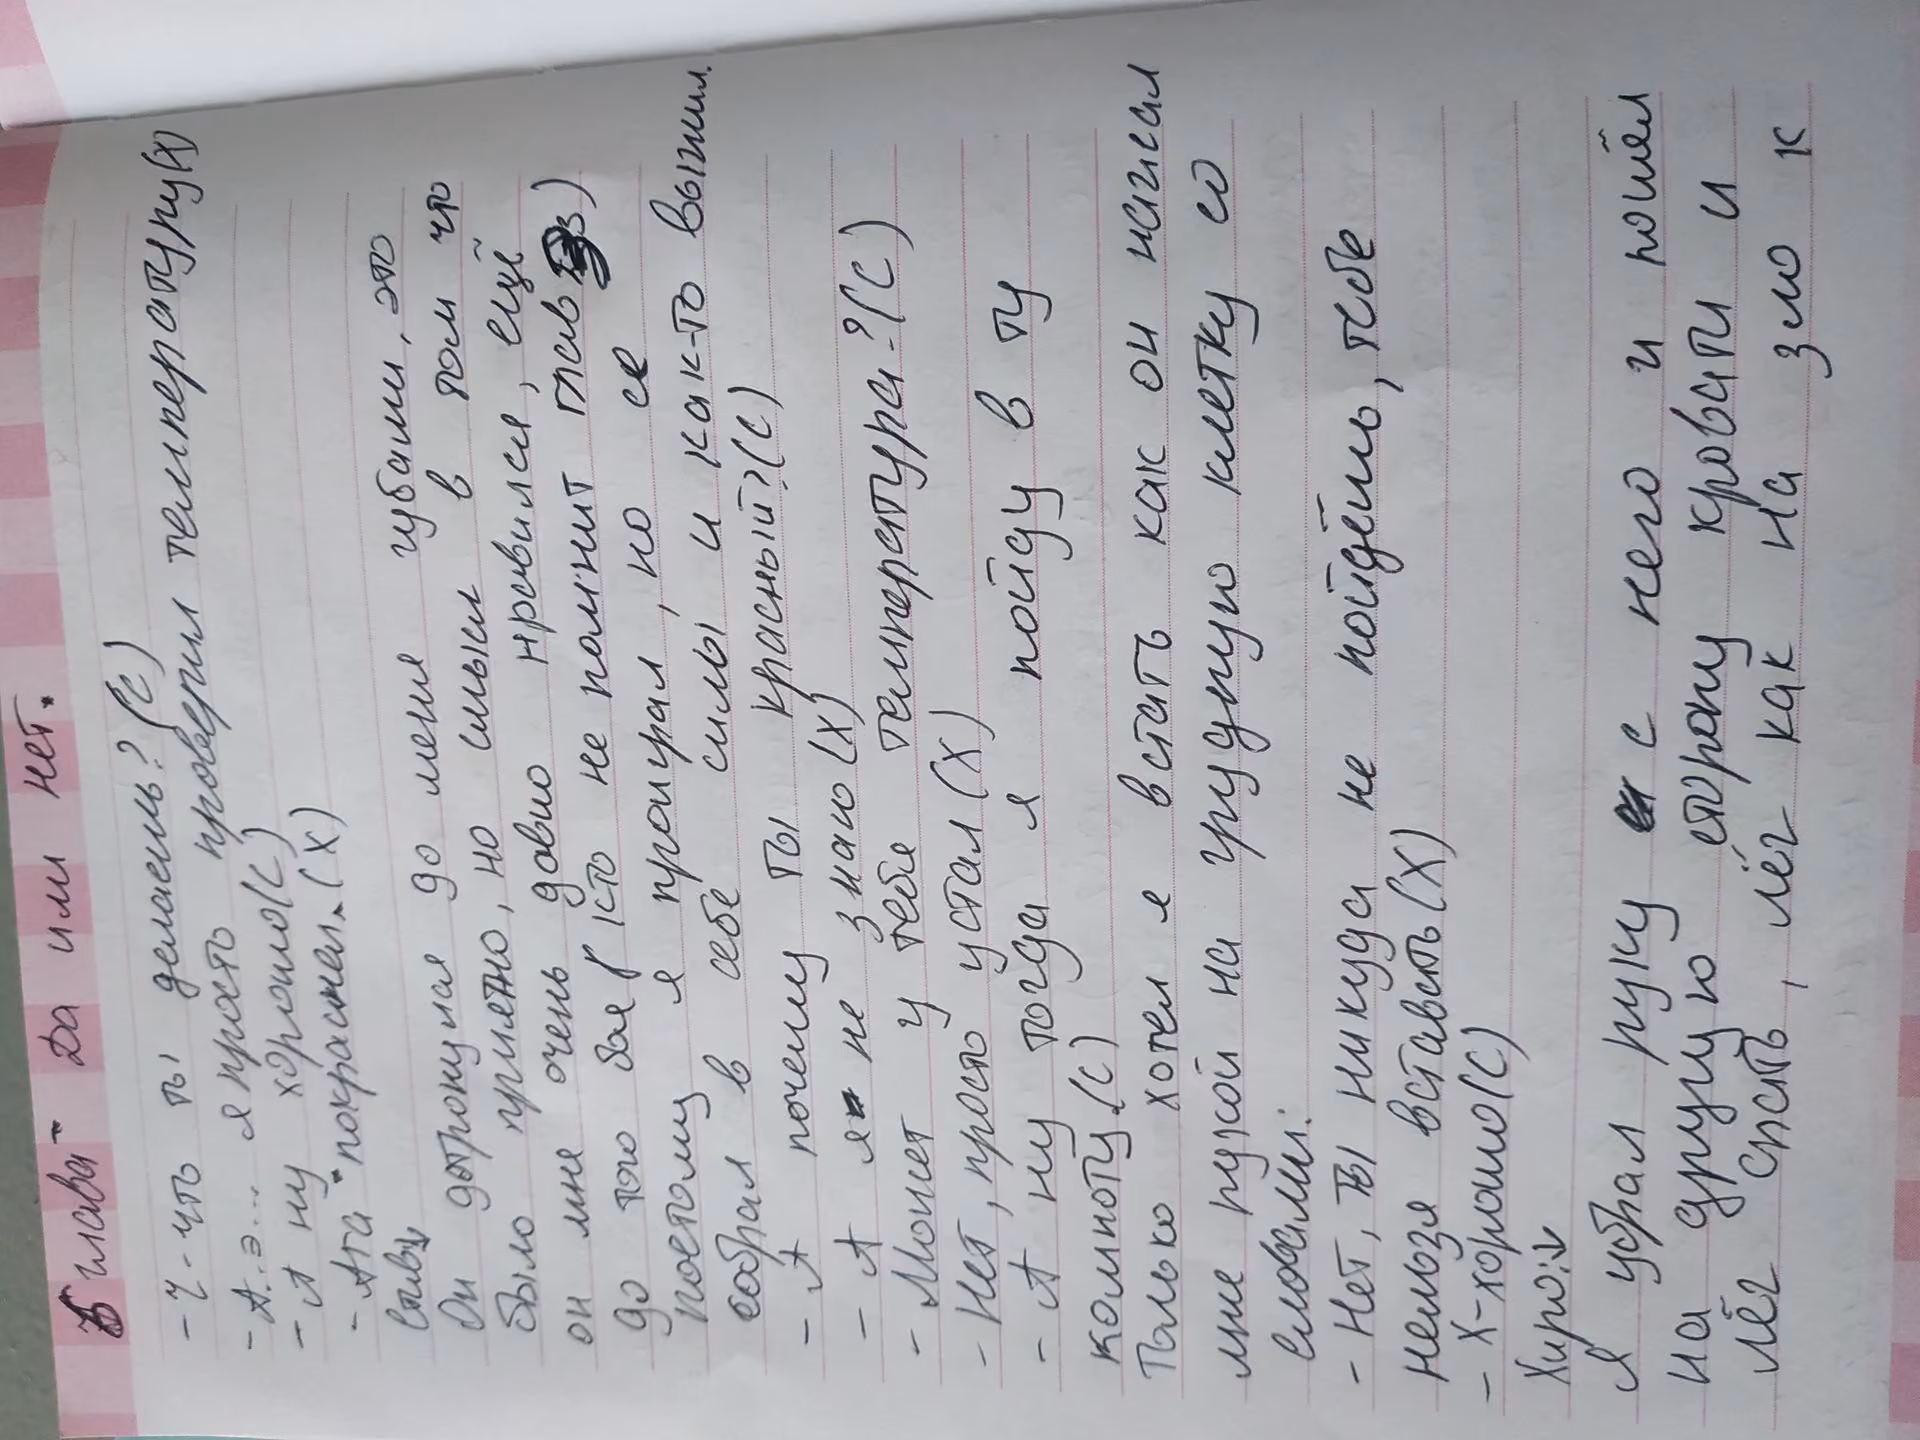 5 глава - Да или нет.
- Ч-что ты делаешь? (С)
- А..э... я просто проверил температуру(Х)
- А ну хорошо(С)
- Ага *покраснел. (Х)
Стив↓
Он дотронулся до меня губами, это
было приятно, но смысл в том что
он мне очень давно нравился, ещё
до того боя (кто не помнит глав з)
поетому я проиграл, но се
собрал в себе силы и как-то выжил.
- А почему ты красный?(С)
- А я не знаю(Х)
- Может у тебя температура?(С)
- Нет, просто устал(Х)
- А ну тогда я пойду в ту
комноту.(С)
Только хотел я встать как он нагнал
мне рукой на грудную клетку со
словами:
- Нет, ты никуда не пойдёшь, тебе
нельзя вставать(Х)
- Х-хорошо(С)
Хиро:↓
Я убрал руку с него и пошёл
на другую сторону кровати и
лёг спать, лёг как на зло к